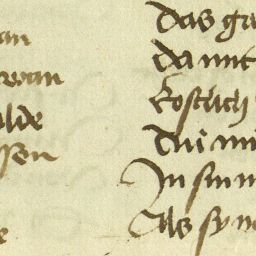 an
wan
alde
ssen
e
Das ga
Da mit
Kostlich
Die mi
In sin m
Als sy n